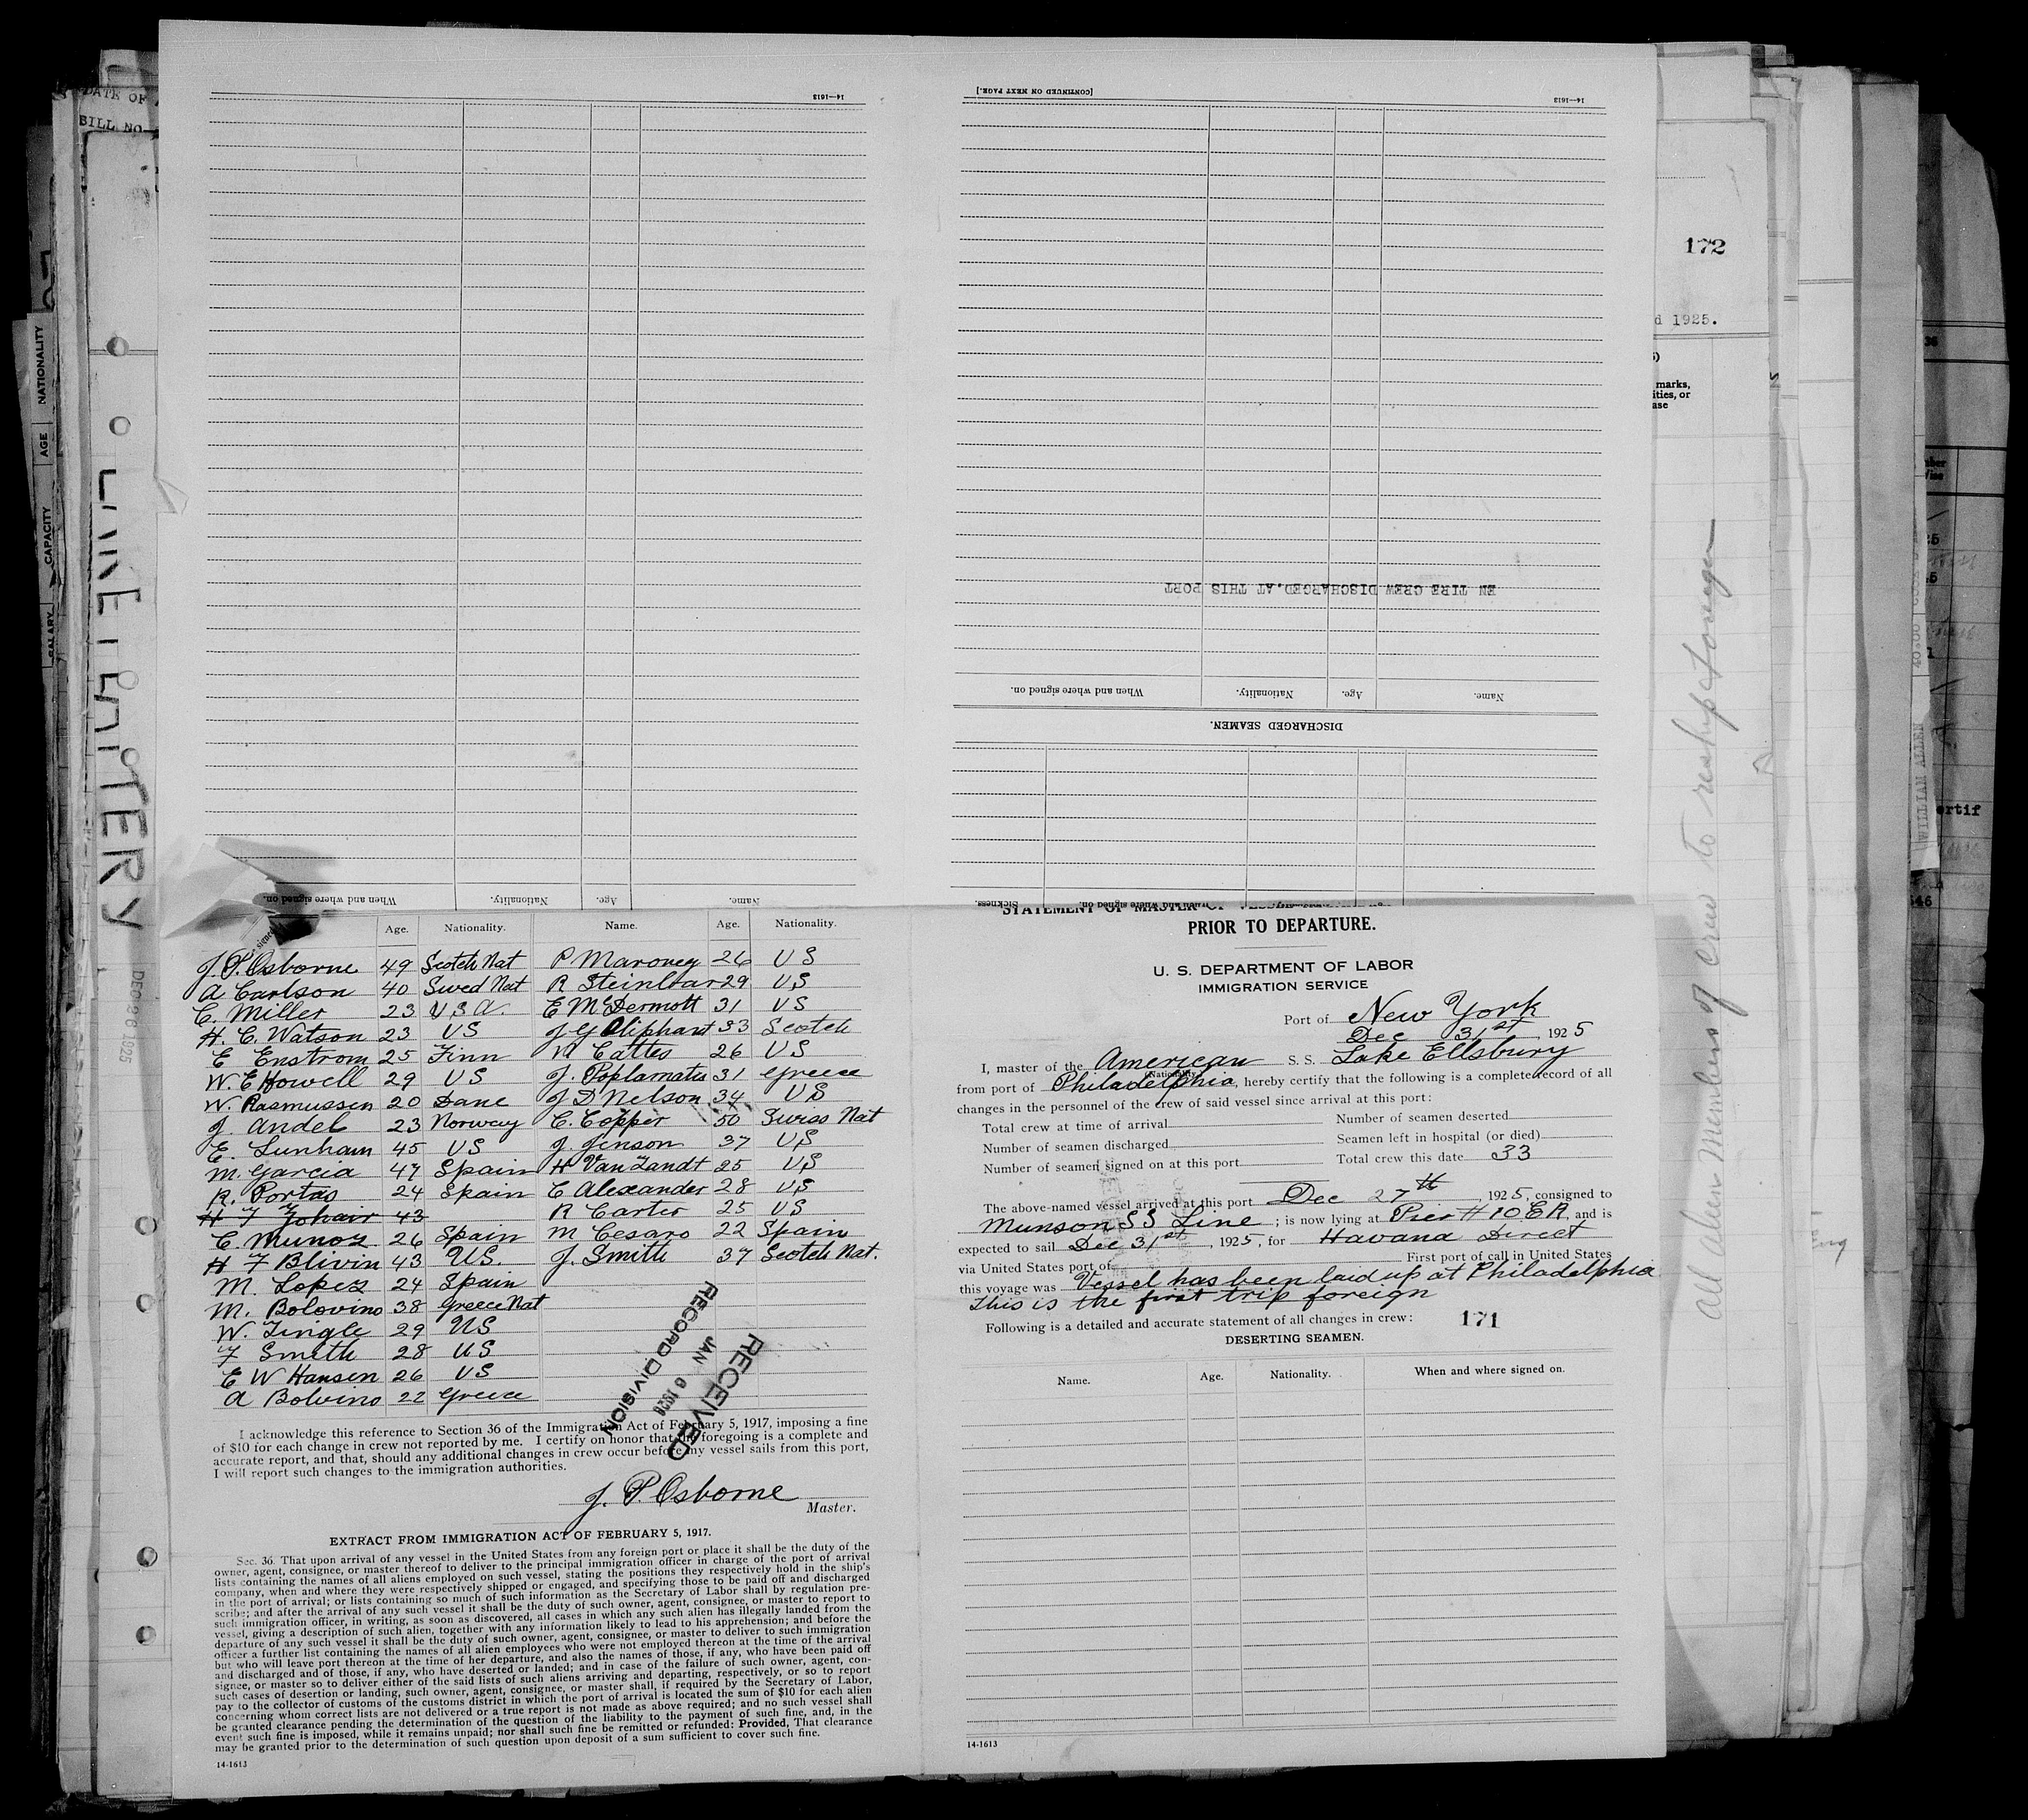 14—1613
[CONTINUED ON NEXT PAGE.]
14—1613
DATE OF
BILL NO.
172
d 1925.
marks,
ities, or
ase
NATIONALITY
AGE
CAPACITY
SALARY
DEC 28 1925
EN TIRE CREW DISCHARGED. AT THIS PORT
When and where signed on.
Nationality.
Age.
Name.
DISCHARGED SEAMEN.
WILLIAM ALLEN
ertif
All alien members of crew to reship foreign
When and where signed on.
Nationality.
Age.
Name.
Sickness.
When and where signed on.
STATEMENT OF MASTER OF
PRIOR TO DEPARTURE.
U. S. DEPARTMENT OF LABOR
IMMIGRATION SERVICE
Port of New York
Dec 31st, 1925
I, master of the American S. S. Lake Ellsbury
(Nationality.)
from port of Philadelphia, hereby certify that the following is a complete record of all
changes in the personnel of the crew of said vessel since arrival at this port:
Total crew at time of arrival
Number of seamen deserted
Number of seamen discharged
Seamen left in hospital (or died)
Number of seamen signed on at this port
Total crew this date 33
The above-named vessel arrived at this port Dec 27th, 1925, consigned to
Munson SS Line; is now lying at Pier # 10 E R, and is
expected to sail Dec 31st, 1925, for Havana Direct
via United States port of First port of call in United States
this voyage was Vessel has been laid up at Philadelphia
This is the first trip foreign
Following is a detailed and accurate statement of all changes in crew: 171
DESERTING SEAMEN.
Name. Age. Nationality. When and where signed on.
14-1613
signed
Age. Nationality. Name. Age. Nationality.
J. P. Osborne 49 Scotch Nat P Maroney 26 US
A Carlson 40 Swed Nat R Steinbar 29 US
C. Miller 23 U S A. E McDermott 31 US
H. C. Watson 23 US J G Oliphant 33 Scotch
E Enstrom 25 Finn W Cattes 26 US
W. E Howell 29 US J. Poplamatis 31 Greece
W. Rasmussen 20 Dane J D Nelson 34 US
J. Andel 23 Norway C. Copper 50 Swiss Nat
E. Lunham 45 US J. Jenson 37 US
M. Garcia 47 Spain H Van Zandt 25 US
R. Portas 24 Spain C Alexander 28 US
H F Johair 43 R Carter 25 US
C. Munoz 26 Spain M Cesaro 22 Spain
H F Blivin 43 US. J. Smith 37 Scotch Nat.
M. Lopez 24 Spain
M. Bolovino 38 Greece Nat
W. Tingle 29 US
F Smith 28 US
E W Hansen 26 US
A Bolvino 22 Greece
RECEIVED
JAN 6 1926
RECORD DIVISION
I acknowledge this reference to Section 36 of the Immigration Act of February 5, 1917, imposing a fine
of $10 for each change in crew not reported by me. I certify on honor that the foregoing is a complete and
accurate report, and that, should any additional changes in crew occur before my vessel sails from this port,
I will report such changes to the immigration authorities.
J. P. Osborne
Master.
EXTRACT FROM IMMIGRATION ACT OF FEBRUARY 5, 1917.
Sec. 36. That upon arrival of any vessel in the United States from any foreign port or place it shall be the duty of the
owner, agent, consignee, or master thereof to deliver to the principal immigration officer in charge of the port of arrival
lists containing the names of all aliens employed on such vessel, stating the positions they respectively hold in the ship's
company, when and where they were respectively shipped or engaged, and specifying those to be paid off and discharged
in the port of arrival; or lists containing so much of such information as the Secretary of Labor shall by regulation pre-
scribe; and after the arrival of any such vessel it shall be the duty of such owner, agent, consignee, or master to report to
such immigration officer, in writing, as soon as discovered, all cases in which any such alien has illegally landed from the
vessel, giving a description of such alien, together with any information likely to lead to his apprehension; and before the
departure of any such vessel it shall be the duty of such owner, agent, consignee, or master to deliver to such immigration
officer a further list containing the names of all alien employees who were not employed thereon at the time of the arrival
but who will leave port thereon at the time of her departure, and also the names of those, if any, who have been paid off
and discharged and of those, if any, who have deserted or landed; and in case of the failure of such owner, agent, con-
signee, or master so to deliver either of the said lists of such aliens arriving and departing, respectively, or so to report
such cases of desertion or landing, such owner, agent, consignee, or master shall, if required by the Secretary of Labor,
pay to the collector of customs of the customs district in which the port of arrival is located the sum of $10 for each alien
concerning whom correct lists are not delivered or a true report is not made as above required; and no such vessel shall
be granted clearance pending the determination of the question of the liability to the payment of such fine, and, in the
event such fine is imposed, while it remains unpaid; nor shall such fine be remitted or refunded: Provided, That clearance
may be granted prior to the determination of such question upon deposit of a sum sufficient to cover such fine.
14-1613